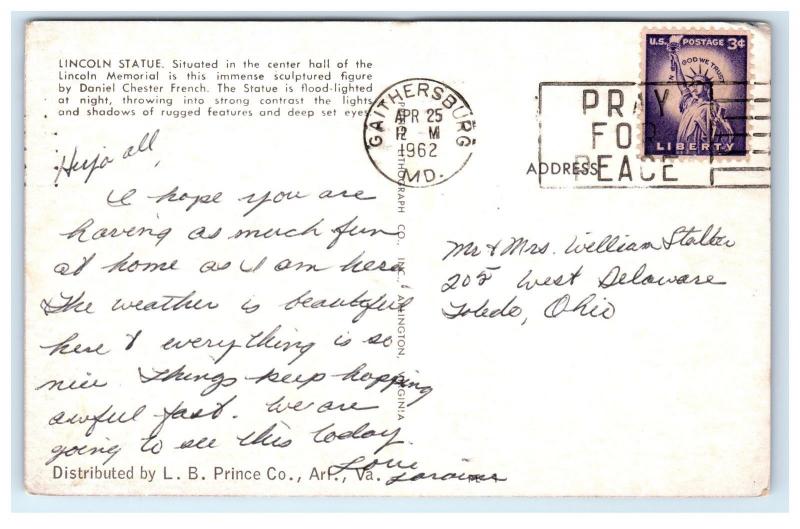 LINCOLN STATUE. Situated in the center hall of the
Lincoln Memorial is this immense sculptured figure
by Daniel Chester French. The Statue is flood-lighted
at night, throwing into strong contrast the lights
and shadows of rugged features and deep set eyes
GAITHERSBURG
APR 25
12 - M
1962
MD.
PRAY
FOR
PEACE
U.S. POSTAGE 3¢
IN GOD WE TRUST
LIBERTY
ADDRESS
all,
I hope you are
having as much fun
at home as I am here
The weather is beautiful
here & everything is so
nice. Things keep hopping
awful fast. We are
going to see this today.
Love
Mr & Mrs. William Stalter
205 West Delaware
Toledo, Ohio
LITHOGRAPH CO., INC., ARLINGTON, VIRGINIA
Distributed by L. B. Prince Co., Arl., Va.